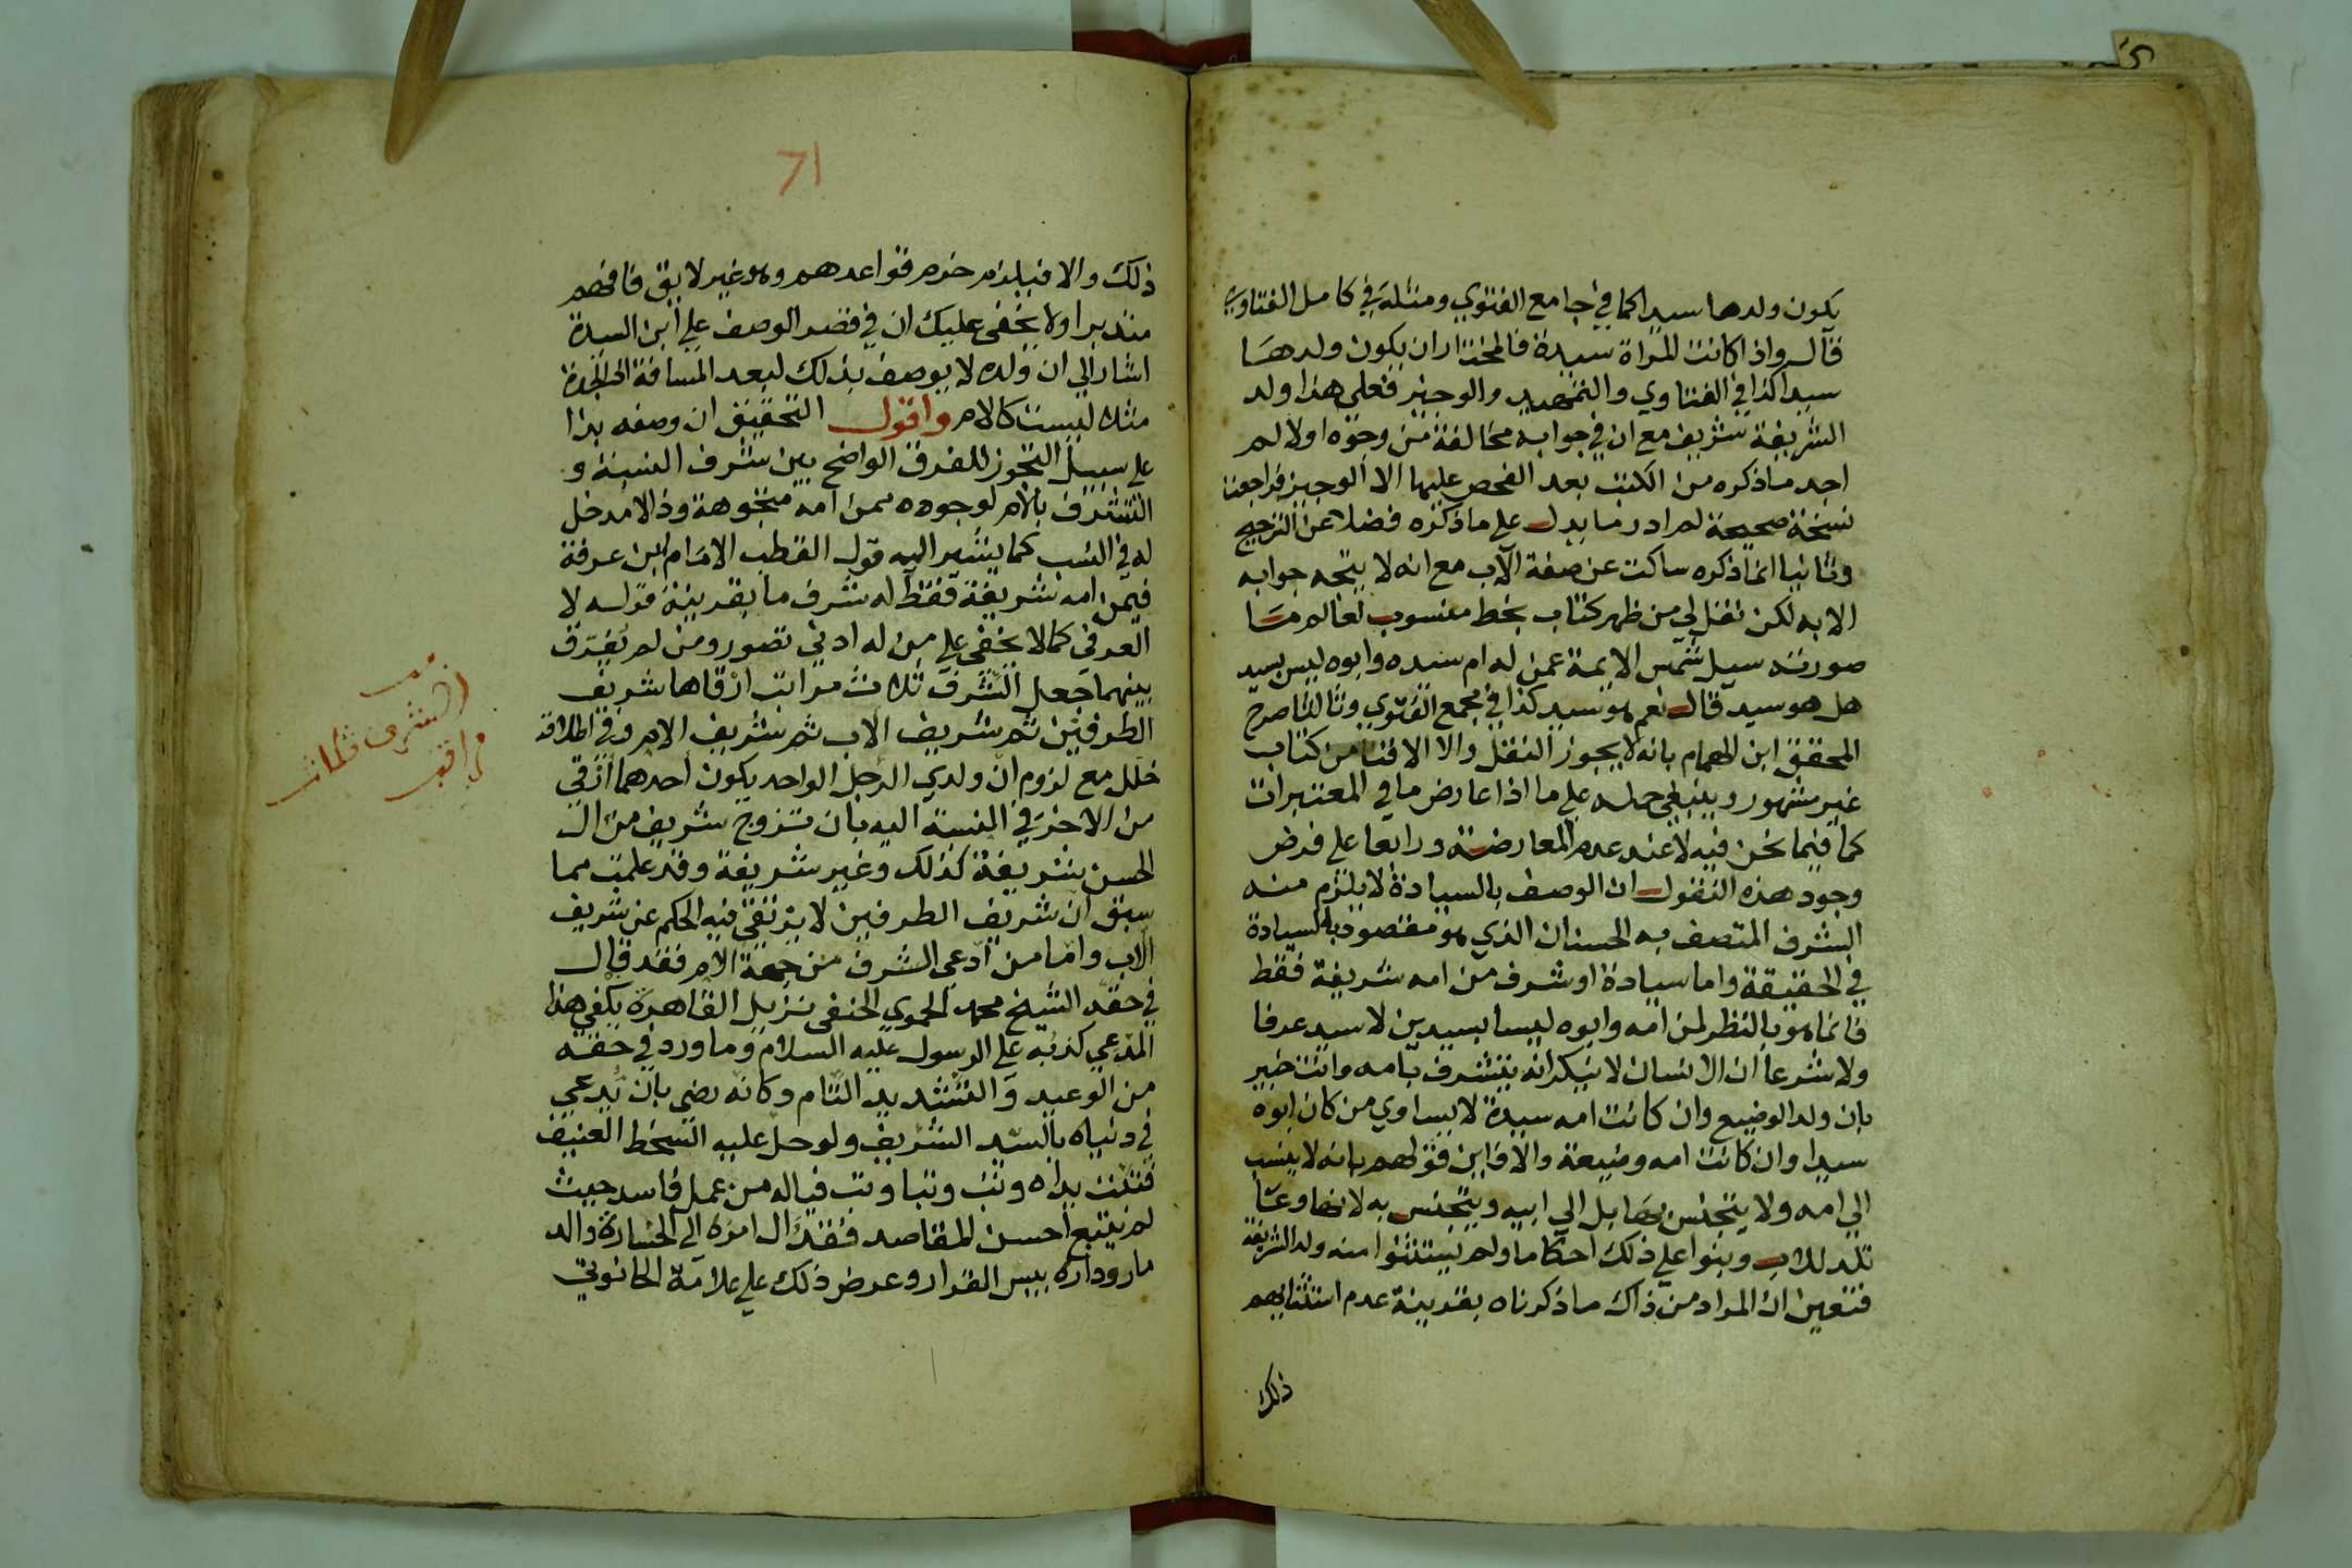 يكون ولدها سيدا كما في جامع الفتوي ومثله في كامل الفتاوي
قال واذا كانت المراة سيدة فالمختار ان يكون ولدها
سيدا كذا في الفتاوي والتمهيد والوجيز فعلى هذا ولد
الشريفة شريف مع ان في جوابه مخالفة من وجوه اولا لم
اجد ما ذكره من الكتب بعد الفحص عليها الا الوجيز فراجعت
نسخة صحيحة لم ادر ما يدل على ما ذكره فضلا عن الترجيح
وثانيا انما ذكره ساكت عن صفة الاب مع انه لا يتجه جوابه
الا به لكن نقل لي من ظهر كتاب بخط منسوب لعالم ما
صورته سيل شمس الايمة عمن له ام سيده وابوه ليس بسيد
هل هو سيد قال نعم هو سيد كذا في مجمع الفتوي وثالثا صرح
المحقق ابن الهمام بانه لا يجوز النقل والا الافتا من كتاب
غير مشهور وينبغي حمله علي ما اذا عارض ما في المعتبرات
كما فيما نحن فيه لا عند عدم المعارضة ورابعا على فرض
وجود هذه النقول ان الوصف بالسيادة لا يلزم منه
الشرف المتصف به الحسنان الذي هو مقصود بالسيادة
في الحقيقة واما سيادة او شرف من امه شريفة فقط
فانما هو بالنظر لمن امه وابوه ليسا بسيدين لا سيد عرفا
ولا شرعا ان الانسان لا ينكر انه يتشرف بامه وانت خبير
بان ولد الوضيع وان كانت امه سيدة لا يساوي من كان ابوه
سيدا وان كانت امه وضيعة والا فاين قولهم بانه لا ينسب
الي امه ولا يتجنس بها بل الي ابيه ويتجنس به لانها وعا
تلد للاب وبنوا علي ذلك احكاما ولم يستثنوا منه ولد الشريفة
فتعين ان المراد من ذاك ما ذكرناه بقرينة عدم استثنايهم
ذلك
71
ذلك والا فيلزم خرم قواعدهم وهو غير لايق فافهم
متدبرا ولا يخفى عليك ان في قصر الوصف علي ابن السيدة
اشار الي ان ولده لا يوصف بذلك لبعد المسافة اذ الجدة
مثلا ليست كالام واقول التحقيق ان وصفه بذا
علي سبيل التجوز للفرق الواضح بين شرف النسبة و
التشرف بالام لوجوده ممن امه متجوهة وذا لا مدخل
له في النسب كما يشير اليه قول القطب الامام ابن عرفة
فيمن امه شريفة فقط له شرف ما بقرينة قوله لا
العرفي كما لا يخفى علي من له ادني تصور ومن لم يفرق
بينهما جعل الشرف ثلاث مراتب ارقاها شريف
الطرفين ثم شريف الاب ثم شريف الام وفي اطلاقه
خلل مع لزوم ان ولدي الرجل الواحد يكون احدهما ارقي
من الاخر في النسبة اليه بان تزوج شريف من ال
الحسن شريفة كذلك وغير شريفة وقد علمت مما
سبق ان شريف الطرفين لا يرتقي فيه الحكم عن شريف
الاب واما من ادعي الشرف من جهة الام فقد قال
في حقه الشيخ محمد الحموي الحنفي نزيل القاهرة يكفي هذا
المدعي كذبه على الرسول عليه السلام وما ورد في حقه
من الوعيد والتشديد التام وكانه رضي بان يدعي
في دنياه بالسيد الشريف ولو حل عليه السخط العنيف
فتبت يداه وتب وتبا وتب فياله من عمل فاسد حيث
لم يتبع احسن المقاصد فقد ال امره الي الخسارة والد
مار وداره بيس القرار وعرض ذلك علي علامة الحانوتي
الشرف ثلاث
مراتب